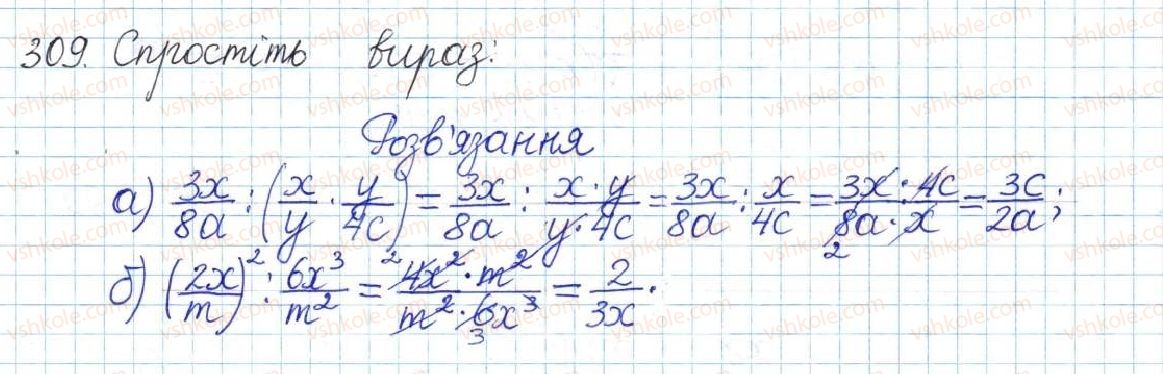 309. Спростіть вираз:
Розв'язання
а) 3x/8a : (x/y · y/4c) = 3x/8a : x·y/y·4c = 3x/8a : x/4c = 3x·4c/8a·x = 3c/2a;
б) (2x/m)² : 6x³/m² = 4x²·m²/m²·6x³ = 2/3x.